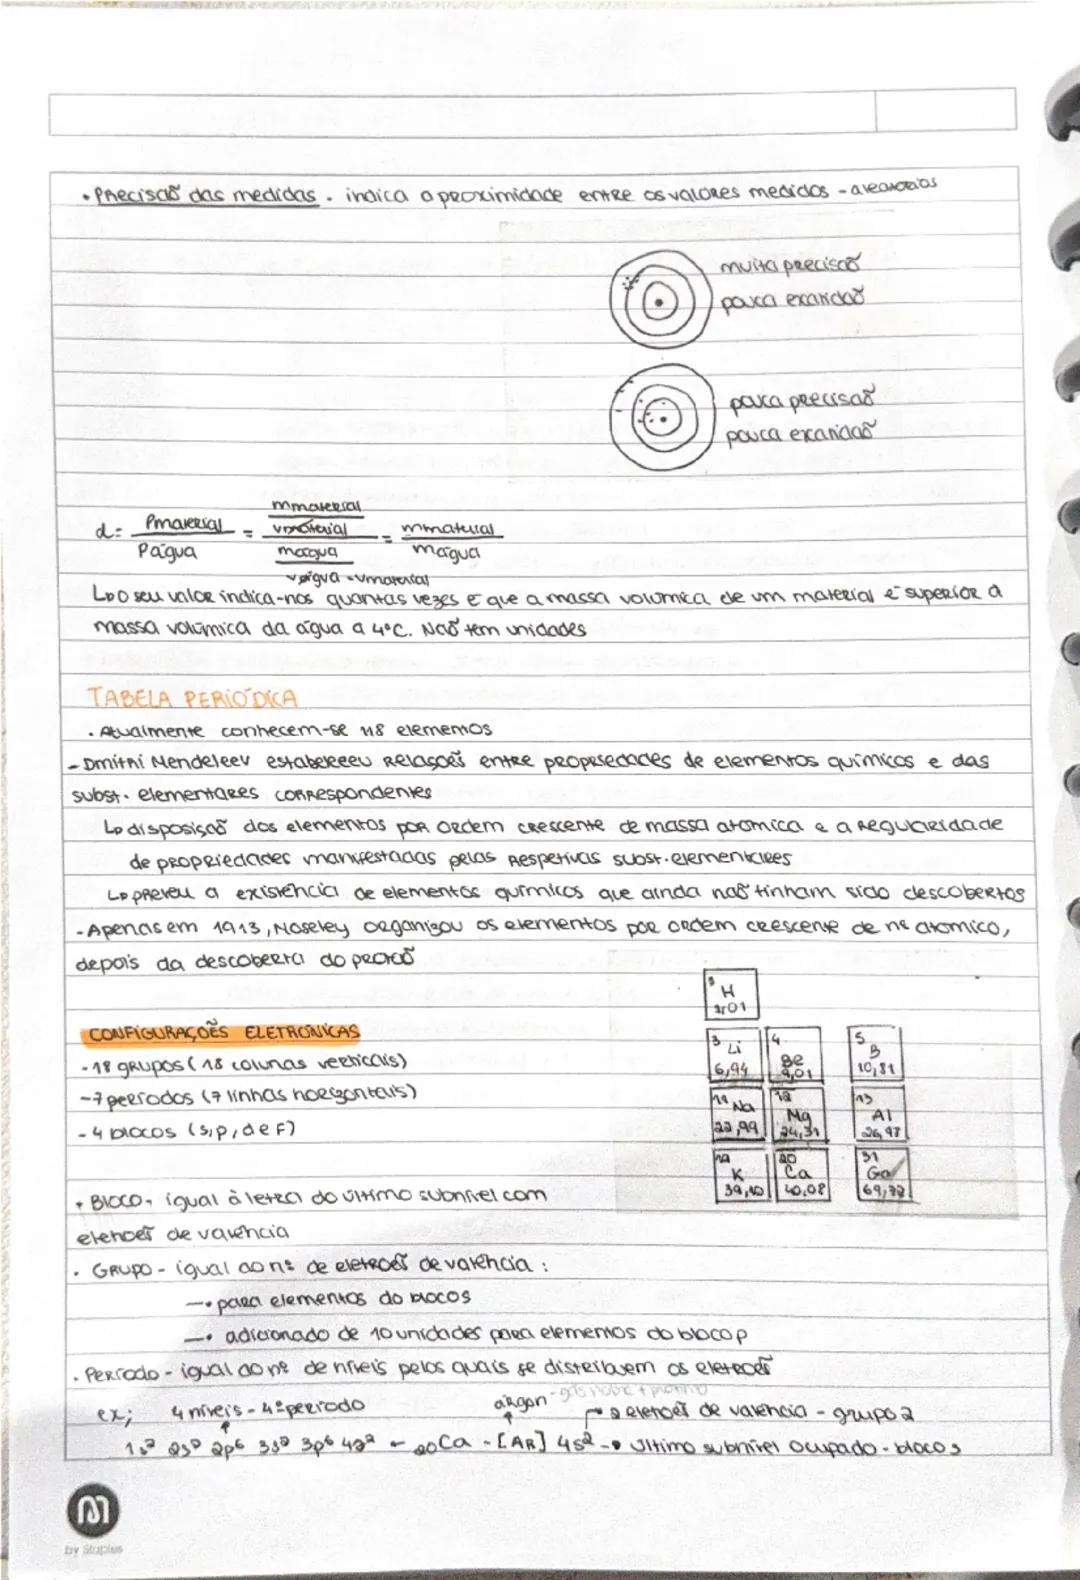 • Precisão das medidas. indica a proximidade entre os valores medidos - aleatórios
muita precisão
pouca exatidão
pouca precisão
pouca exatidão
d = ρmaterial / ρágua = (mmaterial / vmaterial) / (mágua / vágua = vmaterial) = mmaterial / mágua
↳ O seu valor indica-nos quantas vezes é que a massa volúmica de um material é superior à
massa volúmica da água a 4°C. Não tem unidades
TABELA PERIÓDICA
. Atualmente conhecem-se 118 elementos
- Dmitri Mendeleev estabeleceu relações entre propriedades de elementos químicos e das
subst. elementares correspondentes
↳ disposição dos elementos por ordem crescente de massa atómica e a regularidade
de propriedades manifestadas pelas respetivas subst. elementares
↳ preveu a existência de elementos químicos que ainda não tinham sido descobertos
- Apenas em 1913, Moseley organizou os elementos por ordem crescente de nº atómico,
depois da descoberta do protão
1 H 1,01
CONFIGURAÇÕES ELETRÓNICAS
3 Li 6,94 4 Be 9,01 5 B 10,81
- 18 grupos (18 colunas verticais)
- 7 períodos (7 linhas horizontais)
11 Na 22,99 12 Mg 24,31 13 Al 26,97
- 4 blocos (s, p, d e F)
19 K 39,10 20 Ca 40,08 31 Ga 69,72
• Bloco - igual à letra do último subnível com
eletrões de valência
. Grupo - igual ao nº de eletrões de valência :
—• para elementos do bloco s
—• adicionado de 10 unidades para elementos do bloco p
. Período - igual ao nº de níveis pelos quais se distribuem os eletrões
árgon - gás nobre + próximo
ex; 4 níveis - 4º período 2 eletrões de valência - grupo 2
1s² 2s² 2p⁶ 3s² 3p⁶ 4s² ← ₂₀Ca - [AR] 4s² → Último subnível ocupado - bloco s
M
by Staples